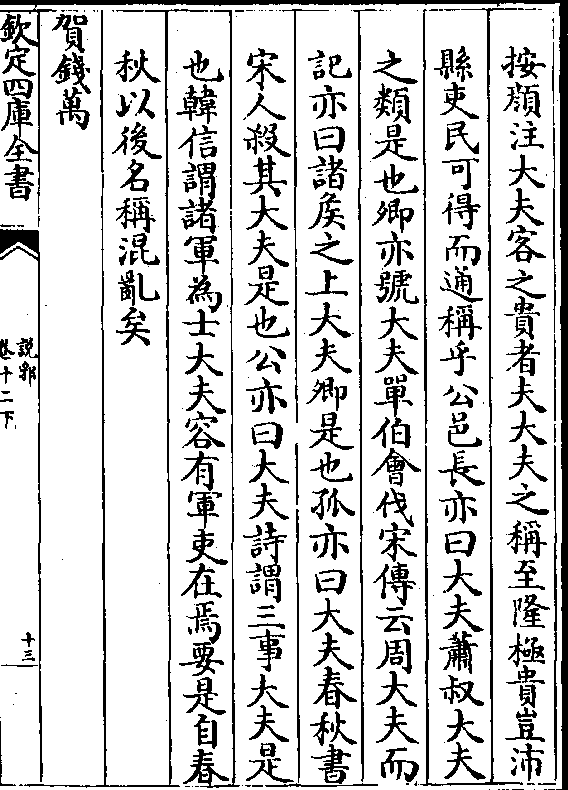 按顔注大夫客之貴者夫大夫之稱至隆極貴豈沛
縣吏民可得而通稱乎公邑長亦曰大夫蕭叔大夫
之類是也卿亦號大夫單伯會伐宋傳云周大夫而
記亦曰諸侯之上大夫卿是也孤亦曰大夫春秋書
宋人殺其大夫是也公亦曰大夫詩謂三事大夫是
也韓信謂諸軍為士大夫容有軍吏在焉要是自春
秋以後名稱混亂矣
賀錢萬
欽定四庫全書
說郛
卷十二下
十三